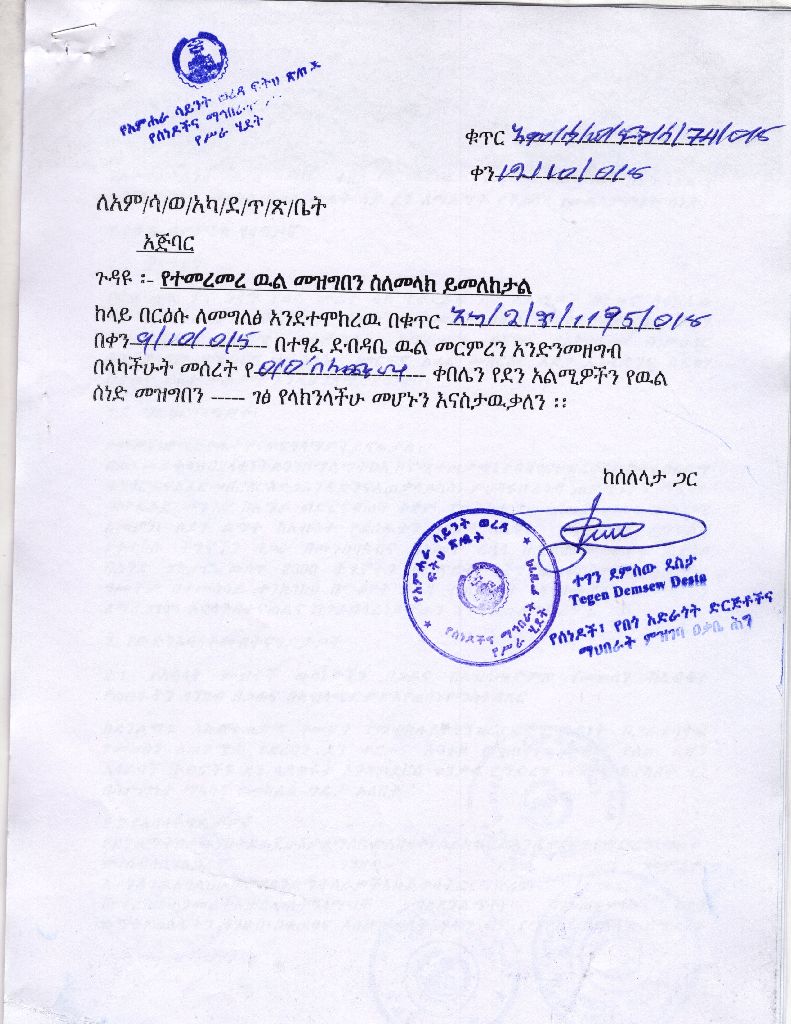 የአምሐራ ሳይንት ወረዳ ፍትህ ጽ/ቤት
የሰነዶችና ማኅበራት
የሥራ ሂደት
ቁጥር
ቀን 12/10/015
ለአም/ሳ/ወ/አካ/ደ/ጥ/ጽ/ቤት
አጅባር
ጉዳዩ ፡- የተመረመረ ዉል መዝግበን ስለመላክ ይመለከታል
ከላይ በርዕሱ ለመግለፅ እንደተሞከረዉ በቁጥር /2/ /1195/015
በቀን 9/10/015 በተፃፈ ደብዳቤ ዉል መርምረን እንድንመዘግብ
በላካችሁት መሰረት የ ቀበሌን የደን አልሚዎችን የዉል
ሰነድ መዝግበን ---- ገፅ የላክንላችሁ መሆኑን እናስታዉቃለን ፡፡
ከሰለላታ ጋር
የአምሐራ ሳይንት ወረዳ
ፍትህ ጽ/ቤት
የሰነዶችና ማኅበራት
የሥራ ሂደት
ተገን ደምሰው ደስታ
Tegen Demsew Desta
የሰነዶች፣ የበጎ አድራጎት ድርጅቶችና
ማህበራት ምዝገባ ዐቃቤ ሕግ